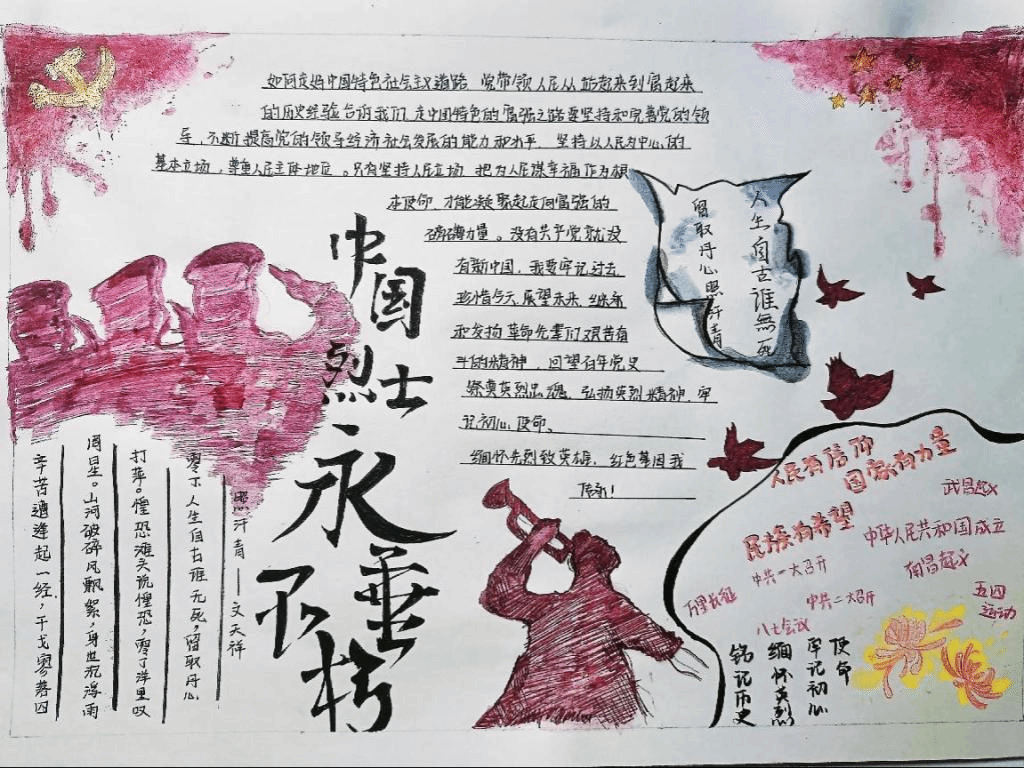 如何走好中国特色社会主义道路 党带领人民从站起来到富起来
的历史经验告诉我们，走中国特色的富强之路要坚持和完善党的领
导，不断提高党的领导经济社会发展的能力和水平、坚持以人民为中心的
基本立场，尊重人民主体地位。只有坚持人民立场、把为人民谋幸福作为根
本使命、才能凝聚起走向富强的
磅礴力量。没有共产党就没
有新中国，我要牢记过去
珍惜今天 展望未来 继承
和发扬革命先辈们艰苦奋
斗的精神，回望百年党史
祭奠英烈忠魂，弘扬英烈精神，牢
记初心 使命。
缅怀先烈致英雄，红色基因我
传承！
人生自古谁無死
留取丹心照汗青
中国
烈士
永垂
不朽
辛苦遭逢起一经，干戈寥落四
周星。山河破碎风飘絮，身世沉浮雨
打萍。惶恐滩头说惶恐，零丁洋里叹
零丁 人生自古谁无死，留取丹心
照汗青——文天祥
人民有信仰
国家有力量
民族有希望
武昌起义
中华人民共和国成立
中共一大召开
南昌起义
万里长征
中共二大召开
五四
运动
八七会议
使命
牢记初心
缅怀英烈
铭记历史